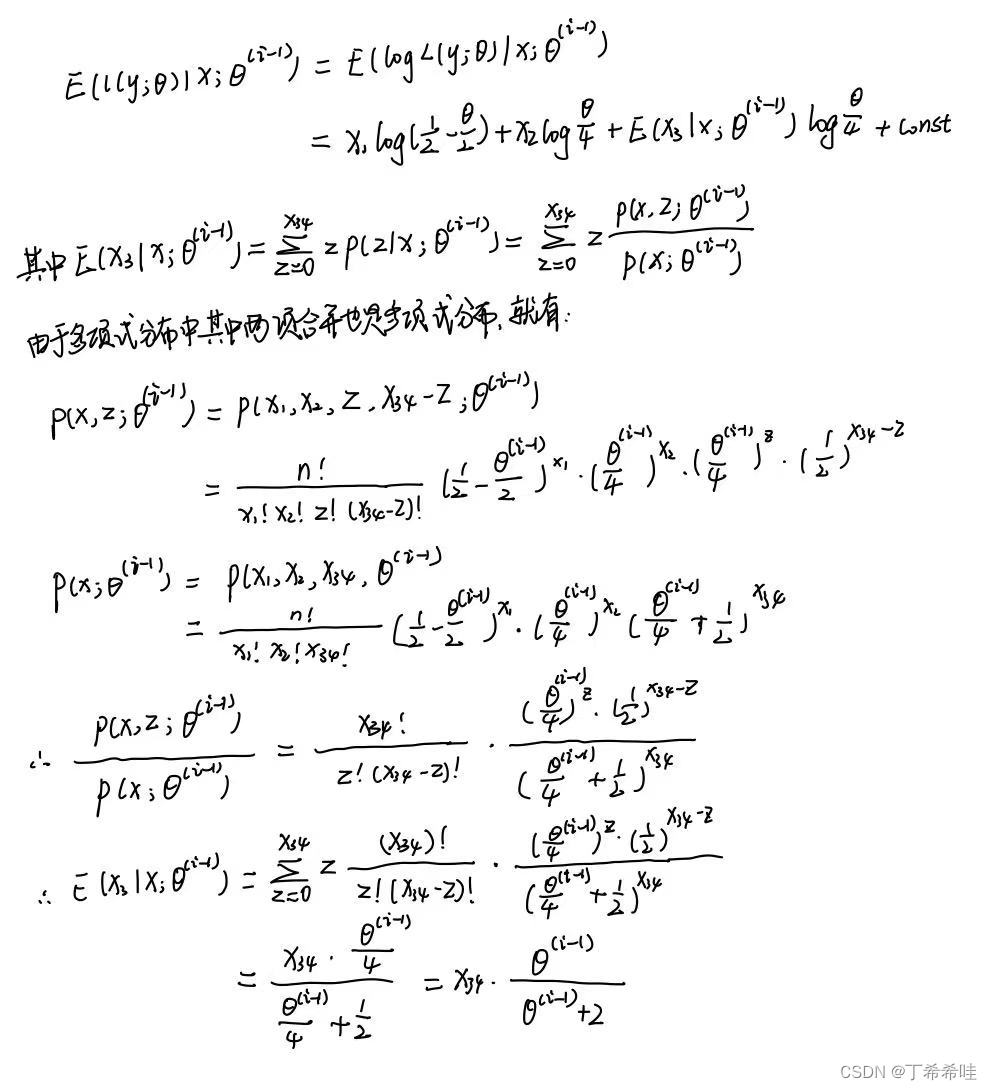 E(l(y;θ)|x;θ^(i-1)) = E(log L(y;θ)|x;θ^(i-1))
= x₁log(1/2 - θ/2) + x₂log θ/4 + E(x₃|x;θ^(i-1)) log θ/4 + const
其中 E(x₃|x;θ^(i-1)) = ∑_{z=0}^{x₃₄} z p(z|x;θ^(i-1)) = ∑_{z=0}^{x₃₄} z p(x,z;θ^(i-1)) / p(x;θ^(i-1))
由于多项式分布中其中两项合并也是多项式分布,就有:
p(x,z;θ^(i-1)) = p(x₁,x₂,z,x₃₄-z;θ^(i-1))
= n! / (x₁! x₂! z! (x₃₄-z)!) (1/2 - θ^(i-1)/2)^x₁ · (θ^(i-1)/4)^x₂ · (θ^(i-1)/4)^z · (1/2)^(x₃₄-z)
p(x;θ^(i-1)) = p(x₁,x₂,x₃₄,θ^(i-1))
= n! / (x₁! x₂! x₃₄!) (1/2 - θ^(i-1)/2)^x₁ · (θ^(i-1)/4)^x₂ (θ^(i-1)/4 + 1/2)^x₃₄
∴ p(x,z;θ^(i-1)) / p(x;θ^(i-1)) = x₃₄! / (z! (x₃₄-z)!) · (θ^(i-1)/4)^z · (1/2)^(x₃₄-z) / (θ^(i-1)/4 + 1/2)^x₃₄
∴ E(x₃|x;θ^(i-1)) = ∑_{z=0}^{x₃₄} z (x₃₄)! / (z! (x₃₄-z)!) · (θ^(i-1)/4)^z · (1/2)^(x₃₄-z) / (θ^(i-1)/4 + 1/2)^x₃₄
= x₃₄ · θ^(i-1)/4 / (θ^(i-1)/4 + 1/2) = x₃₄ · θ^(i-1) / (θ^(i-1)+2)
CSDN @丁希希哇